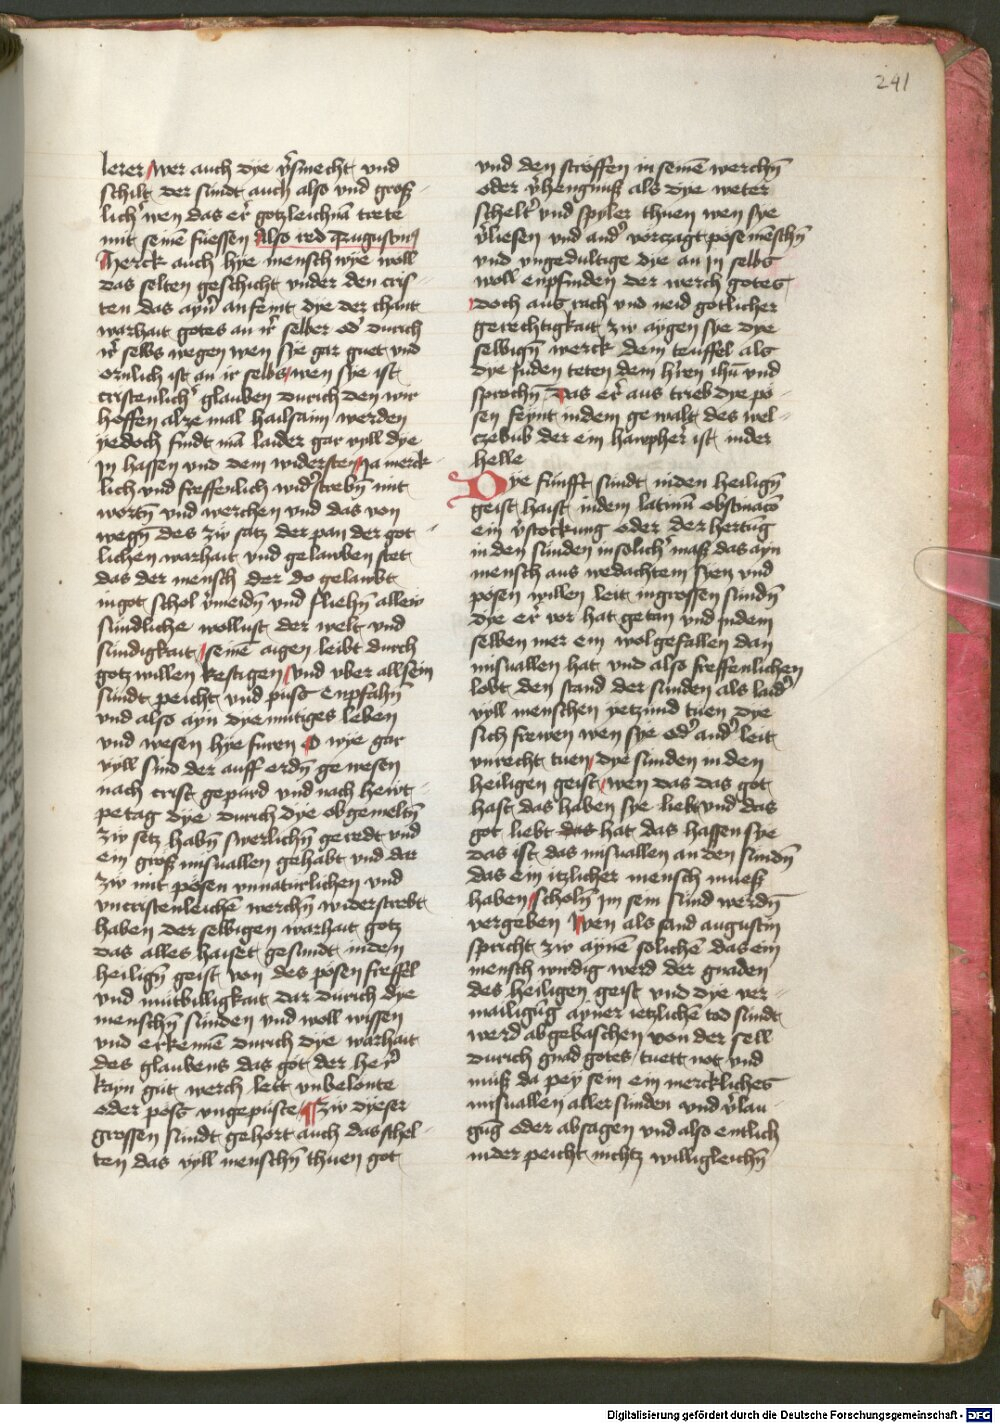 241
lerer wer auch dye v̉smecht und
schilt der sundt auch also und groß
lich wen das er̉ gotzleichnā trete
mit seinē fuessen Also red Augustinꝯ
Merck auch hye mensch wye woll
das selten geschicht under den cris-
ten das ayn̄ an feint dye der chant
warhait gotes an ir̉ selber od̉ durich
ir̉ selbs wegen wen sye gar guet und
ornlich ist an ir selbs wen sye ist
cristenlich̉ glauben durich den wir
hoffen alze mal hailsam werden
yedoch findt mā laider gar vyll dye
jn hassen und dem widersten Ja merck-
lich und freffenlich wid̉strebn̄ mit
wortn̄ und werchen und das von
wegn̄ des zw satz der pan der got-
lichen warhait und gelawben stet
das der mensch der do gelawbt
in got schol v̉meidn̄ und fliehn̄ allew
sundliche wollust der welt und
sundigkait seinē aigen leibt durch
gotz willen kestigen und uber all sein
sundt peicht und puss enpfahn̄
und also ayn dyemutiges leben
und wesen hye furen O wye gar
vyll sind der auff erdn̄ gewesen
nach crist gepurd und nach hewt-
pe tag dye durich dye obgemeltn̄
zw setz habn̄ swerlichn̄ geredt und
ein groß misuallen gehabt und dar
zw mit pösen unnaturlichen und
uncristenleichē werchn̄ widerstrebt
haben der selbigen warhait gotz
das alles haiset gesundt in den
heilign̄ geist von des pösen freffel
und mutbilligkait dar durich dye
menschn̄ sunden und woll wissen
und erkennē durich dye warhait
des glaubens das got der her̉
kayn gut werch lett unbelonte
oder pöss ungepuste ¶ Zw dyeser
grossen sundt gehort auch das schel-
ten das vyll menschn̄ thuen got
und den stroffen in seinē werchn̄
oder v̉hengnuß als dye weter
schelt̉ und spyler thuen wen sye
v̉liesen und and̉ vorczagt posemēschn̄
und ungedultige dye an jn selbs
woll enpfinden der werch gotes
doch aus rach und neid gotlicher
gerechtigkait zw aygen sye dye
selbign̄ werck dem teuffel als
dye Juden teten dem h̉ren ihū und
sprochn̄ Das er̉ aus trieb dye po-
sen feynt in dem gewalt des wel-
czebub der ein hawpher̉ ist in der
helle
Dye funfft sundt in den heilign̄
geist haist in dem latinū obstinacō
ein v̉stockung oder der hertūg
in den sunden in solich̉ maß das ayn
mensch aus wedachtem syen und
posen willen leit in grossen sundn̄
dye er̉ vor hat getan und in dem
selben mer ein wolgefallen dan
misuallen hat und also freffenlichen
lobt den stand der sunden als laid̉
vyll menschen yetzund tuen dye
sich frewen wen sye od̉ and̉ leit
unrecht tuen dye sunden in den
heiligen geist wen das das got
hast das haben sye lieb und das
got liebt das hat das hassen sye
das ist das misuallen an den sundn̄
das ein itzlicher mensch mueß
haben scholn̄ jm sein sund werdn̄
vergeben Wen als sand augustin
spricht zw aynē solichē das ein
mensch wirdig werd der gnaden
des heiligen geist und dye ver-
mailigūg ayner ietzlichē tod sundt
werd abgebaschen von der sell
durich gnad gotes tuett not und
muß da pey sein ein merckliches
misuallen aller sunden und v̉lau-
gūg oder absagen und also entlich
in der peicht nichtz willigleichn̄
Digitalisierung gefördert durch die Deutsche Forschungsgemeinschaft - DFG